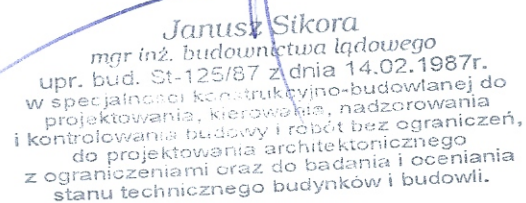 Janusz Sikora
mgr inż. budownictwa lądowego
upr. bud. St-125/87 z dnia 14.02.1987r.
w specjalności konstrukcyjno-budowlanej do
projektowania, kierowania, nadzorowania
i kontrolowania budowy i robót bez ograniczeń,
do projektowania architektonicznego
z ograniczeniami oraz do badania i oceniania
stanu technicznego budynków i budowli.